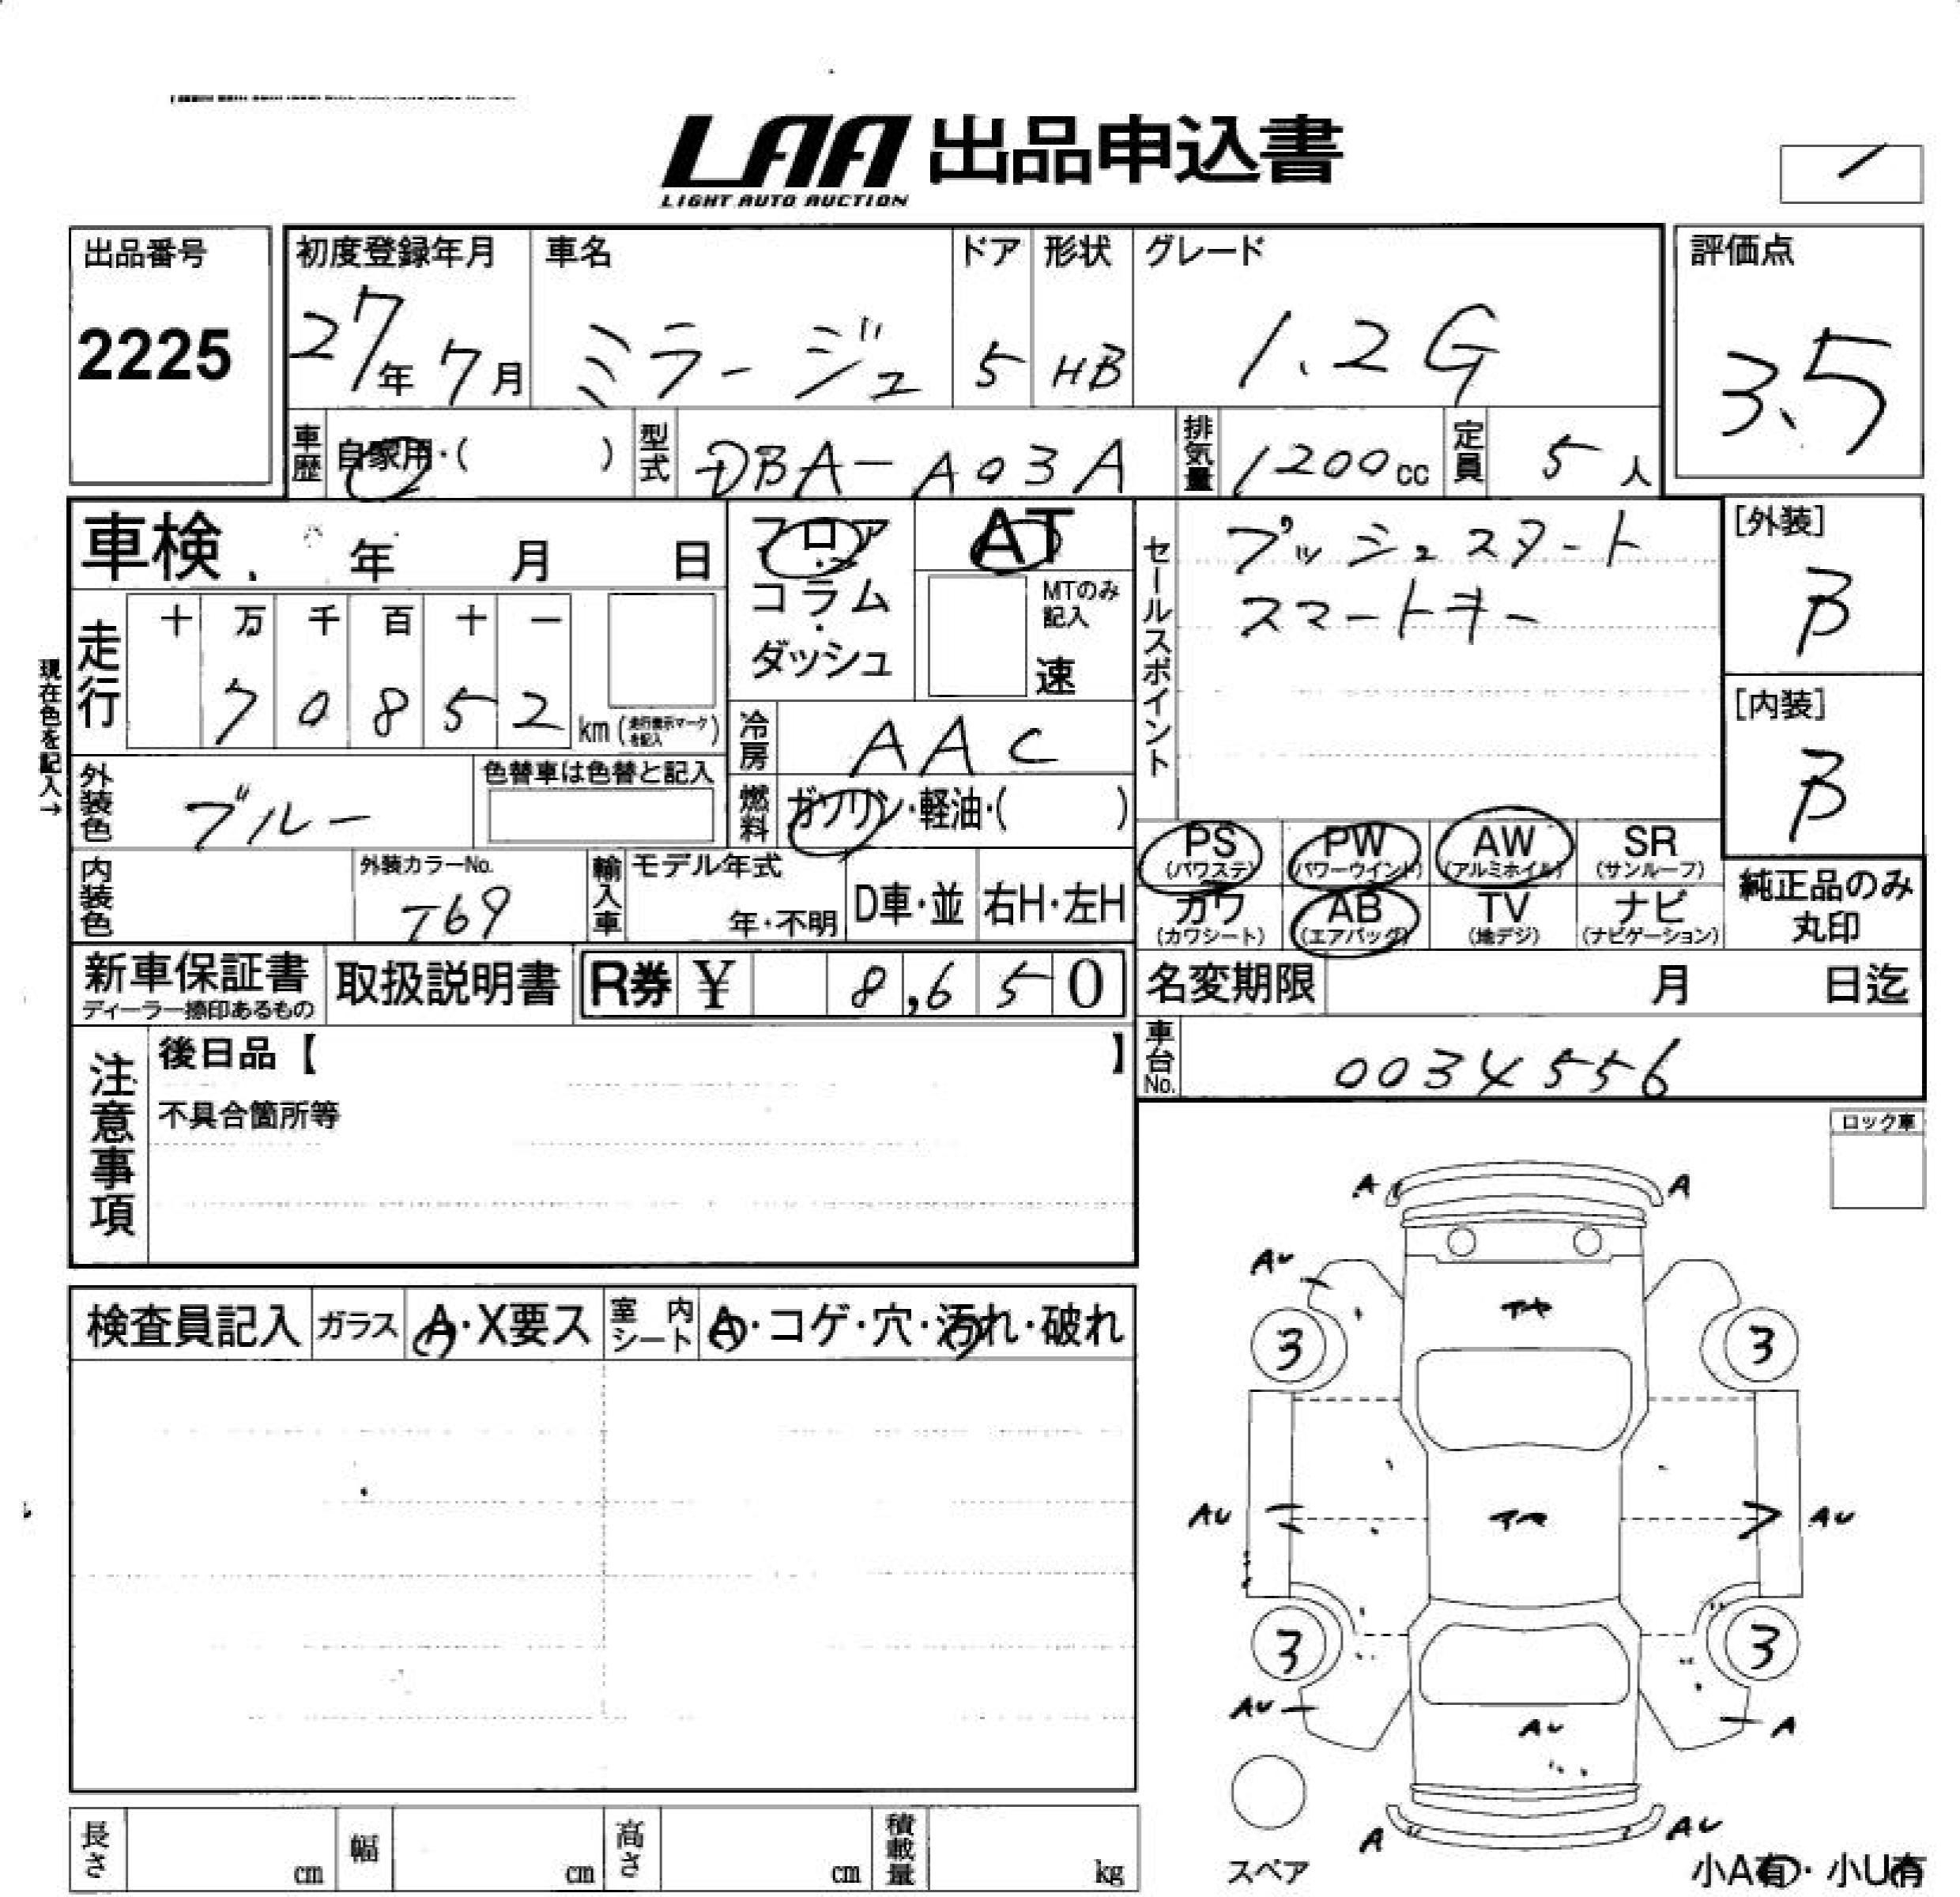 LAA 出品申込書
LIGHT AUTO AUCTION
出品番号
2225
初度登録年月
27年 7月
車名
ミラージュ
ドア
5
形状
HB
グレード
1.2G
評価点
3.5
車歴 自家用・( )
型式 DBA-A03A
排気量 1200cc
定員 5人
車検 年 月 日
フロア
・
コラム
・
ダッシュ
AT
MTのみ
記入
速
セールスポイント
プッシュスタート
スマートキー
[外装]
B
[内装]
B
現在色を記入→
走行
十 万 千 百 十 一
7 0 8 5 2 km (走行表示マークを記入)
冷房 AAC
外装色 ブルー
色替車は色替と記入
燃料 ガソリン・軽油・( )
PS (パワステ) PW (パワーウインド) AW (アルミホイル) SR (サンルーフ)
カワ (カワシート) AB (エアバック) TV (地デジ) ナビ (ナビゲーション)
純正品のみ
丸印
内装色
外装カラーNo.
T69
輸入車
モデル年式
年・不明
D車・並 右H・左H
新車保証書
ディーラー捺印あるもの
取扱説明書
R券 ¥ 8,650
名変期限 月 日迄
車台No. 0034556
注意事項
後日品【 】
不具合箇所等
ロック車
検査員記入 ガラス A・X要ス 室内シート A・コゲ・穴・汚れ・破れ
A A
AU
3 3
AU AU
3 3
AU AU A
A AU
スペア
小A有・小U有
長さ cm 幅 cm 高さ cm 積載量 kg